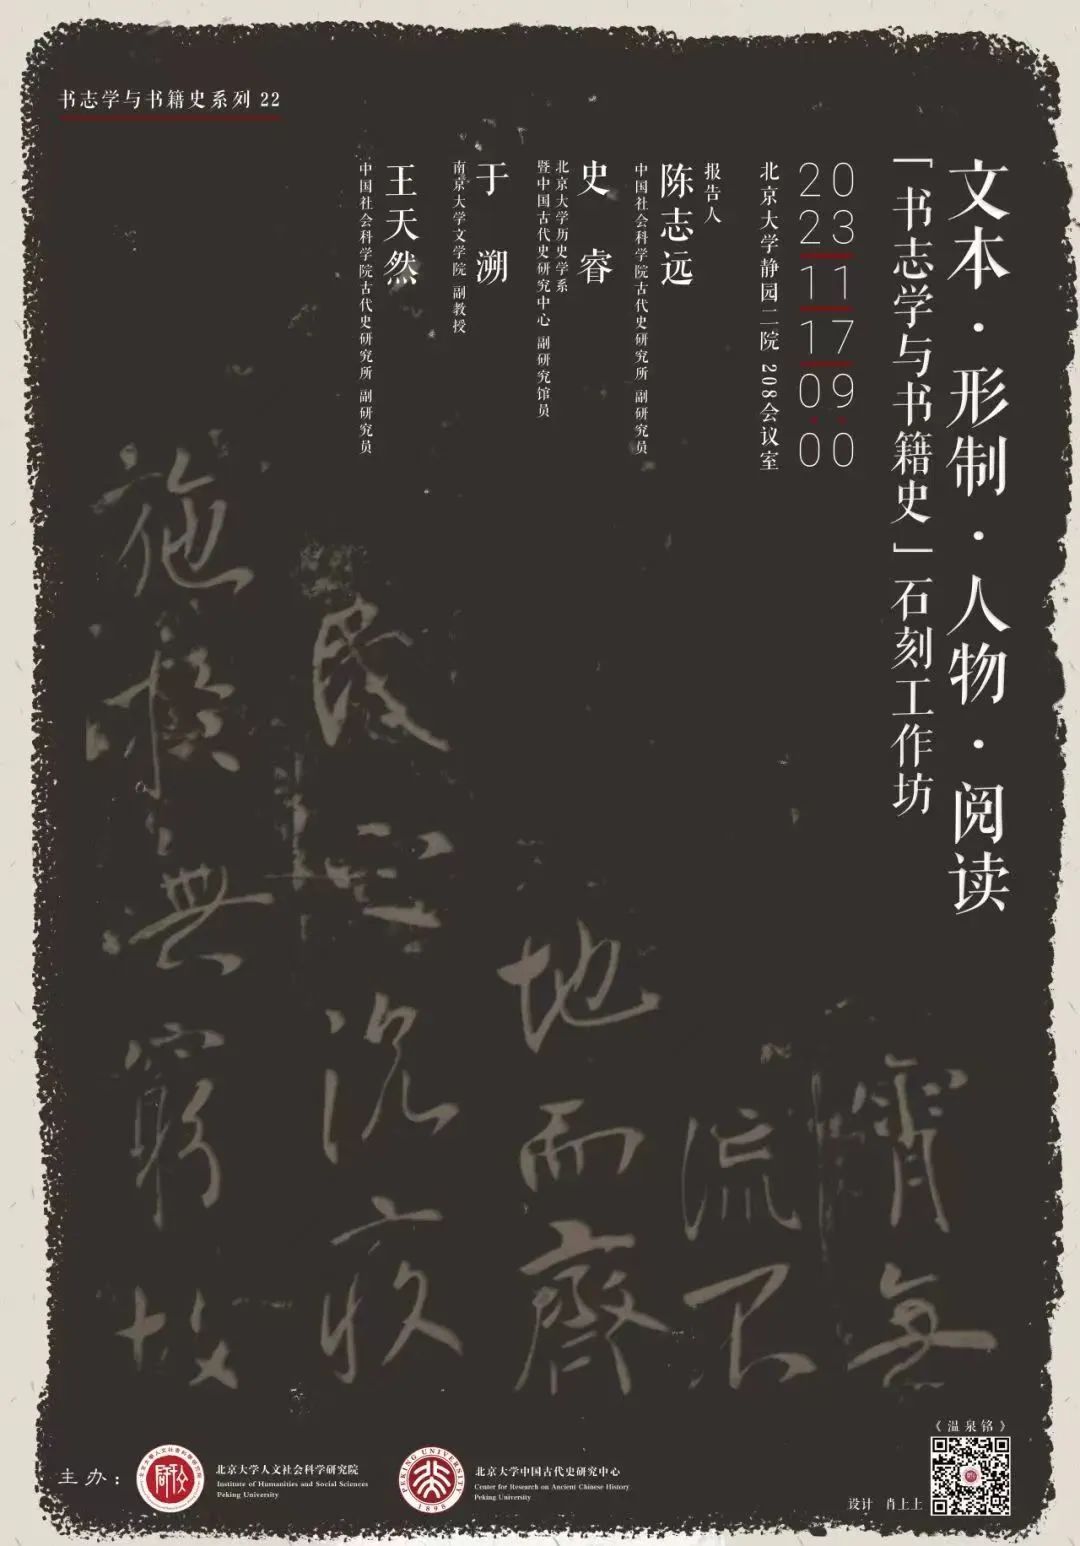 书志学与书籍史系列 22
文本·形制·人物·阅读
「书志学与书籍史」石刻工作坊
20
23
11
17
09:
00
北京大学静园二院 208会议室
报告人
陈志远
中国社会科学院古代史研究所 副研究员
史 睿
北京大学历史学系
暨中国古代史研究中心 副研究馆员
于 溯
南京大学文学院 副教授
王天然
中国社会科学院古代史研究所 副研究员
霄無
流不
地而齊
民之沉疾
施於無窮故
《温泉铭》
主办：
北京大学人文社会科学研究院
Institute of Humanities and Social Sciences
Peking University
PEKING UNIVERSITY
1898
北京大学中国古代史研究中心
Center for Research on Ancient Chinese History
Peking University
设计 肖上上